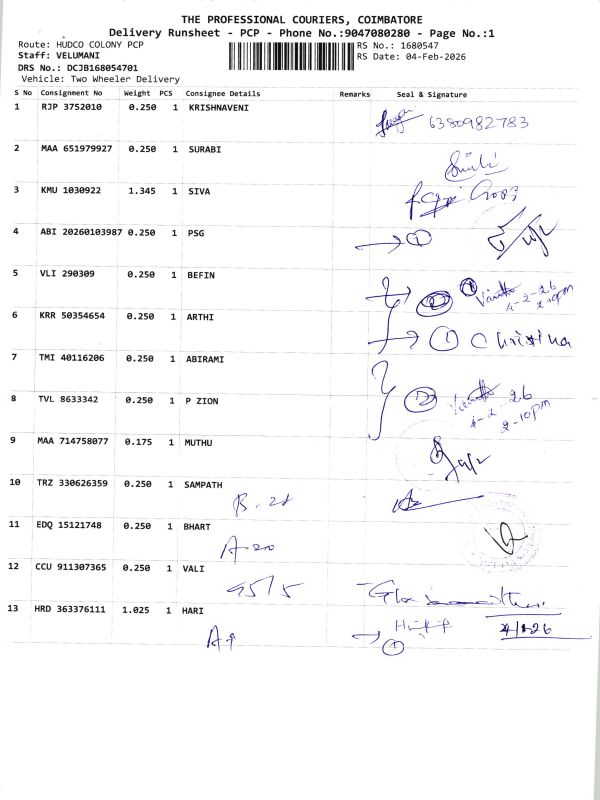 THE PROFESSIONAL COURIERS, COIMBATORE
Delivery Runsheet - PCP - Phone No.:9047080280 - Page No.:1
Route: HUDCO COLONY PCP
RS No.: 1680547
Staff: VELUMANI
RS Date: 04-Feb-2026
DRS No.: DCJB168054701
Vehicle: Two Wheeler Delivery
S No Consignment No Weight PCS Consignee Details Remarks Seal & Signature
1 RJP 3752010 0.250 1 KRISHNAVENI 6380982783
2 MAA 651979927 0.250 1 SURABI
3 KMU 1030922 1.345 1 SIVA
4 ABI 20260103987 0.250 1 PSG 1
5 VLI 290309 0.250 1 BEFIN
4-2-26
2.10pm
6 KRR 50354654 0.250 1 ARTHI 1 Christina
7 TMI 40116206 0.250 1 ABIRAMI
8 TVL 8633342 0.250 1 P ZION 2
4-2-26
2-10pm
9 MAA 714758077 0.175 1 MUTHU
10 TRZ 330626359 0.250 1 SAMPATH
B-21
11 EDQ 15121748 0.250 1 BHART
A-20
12 CCU 911307365 0.250 1 VALI
95/5
13 HRD 363376111 1.025 1 HARI
1